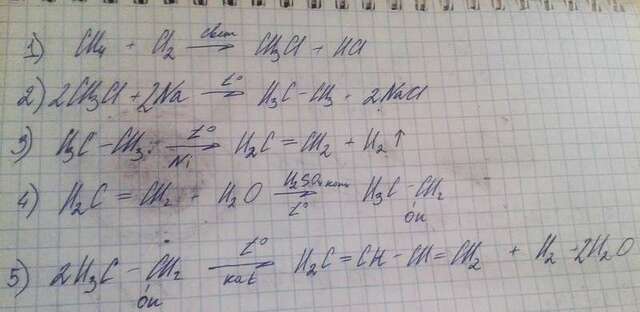 1) CH4 + Cl2 —свет→ CH3Cl + HCl
2) 2CH3Cl + 2Na —t°→ H3C – CH3 + 2NaCl
3) H3C – CH3 —t° Ni→ H2C = CH2 + H2↑
4) H2C = CH2 + H2O —H2SO4 конц t°→ H3C – CH2
OH
5) 2H3C – CH2 —t° kat→ H2C = CH – CH = CH2 + H2 + 2H2O
OH